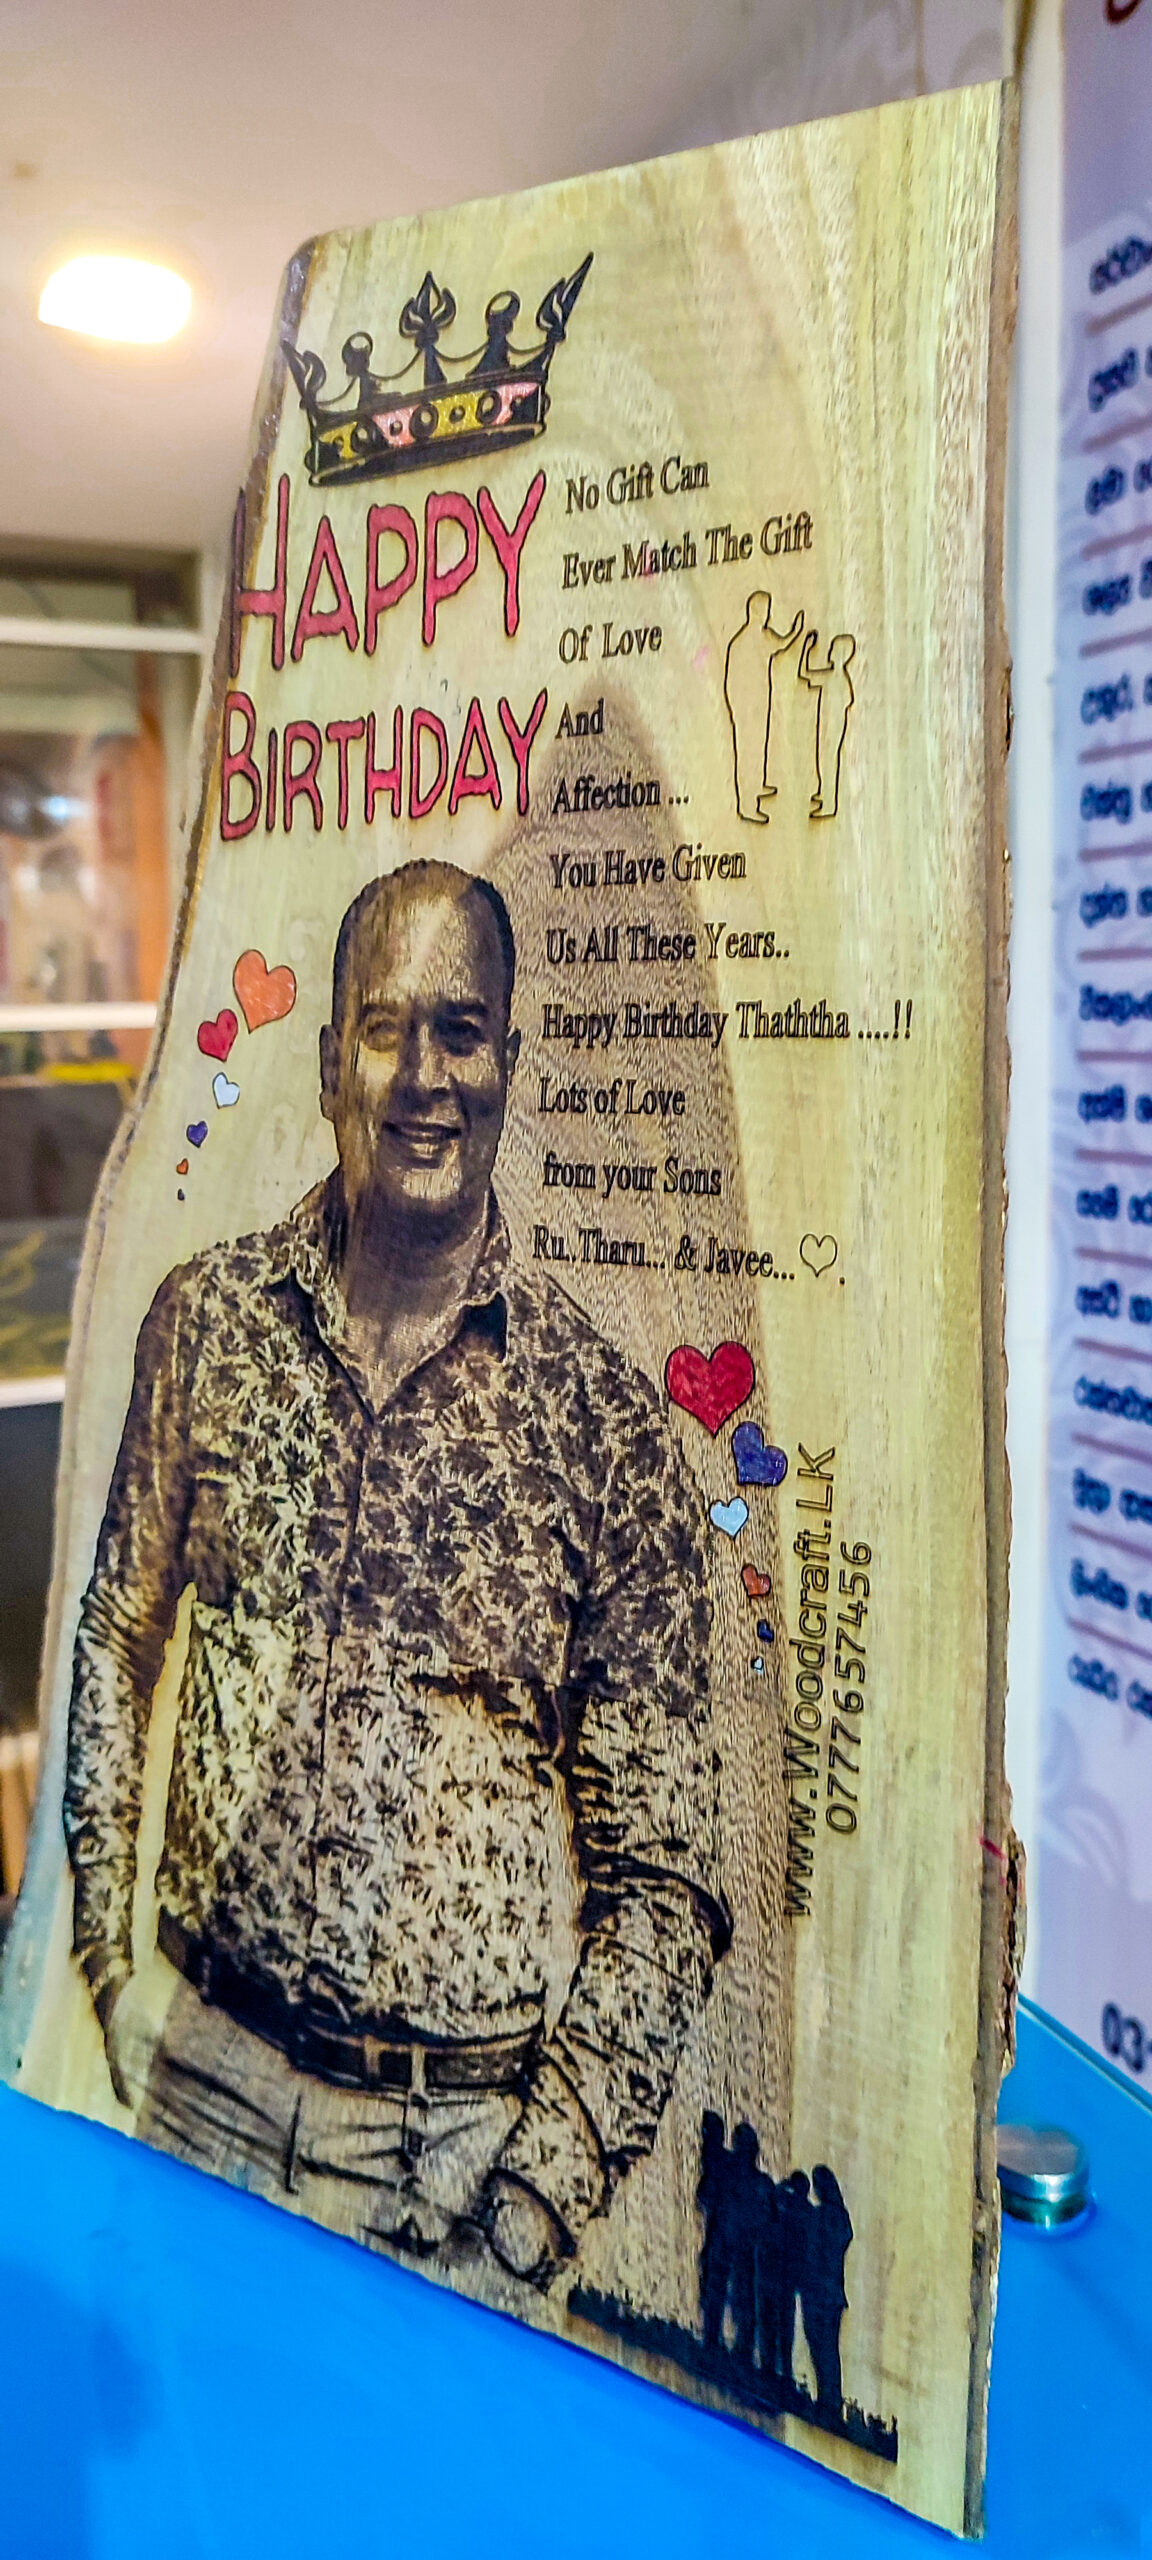 HAPPY
BIRTHDAY
No Gift Can
Ever Match The Gift
Of Love
And
Affection ...
You Have Given
Us All These Years..
Happy Birthday Thaththa ....!!
Lots of Love
from your Sons
Ru..Tharu... & Javee... ♡.
www.Woodcraft.LK
0777657456